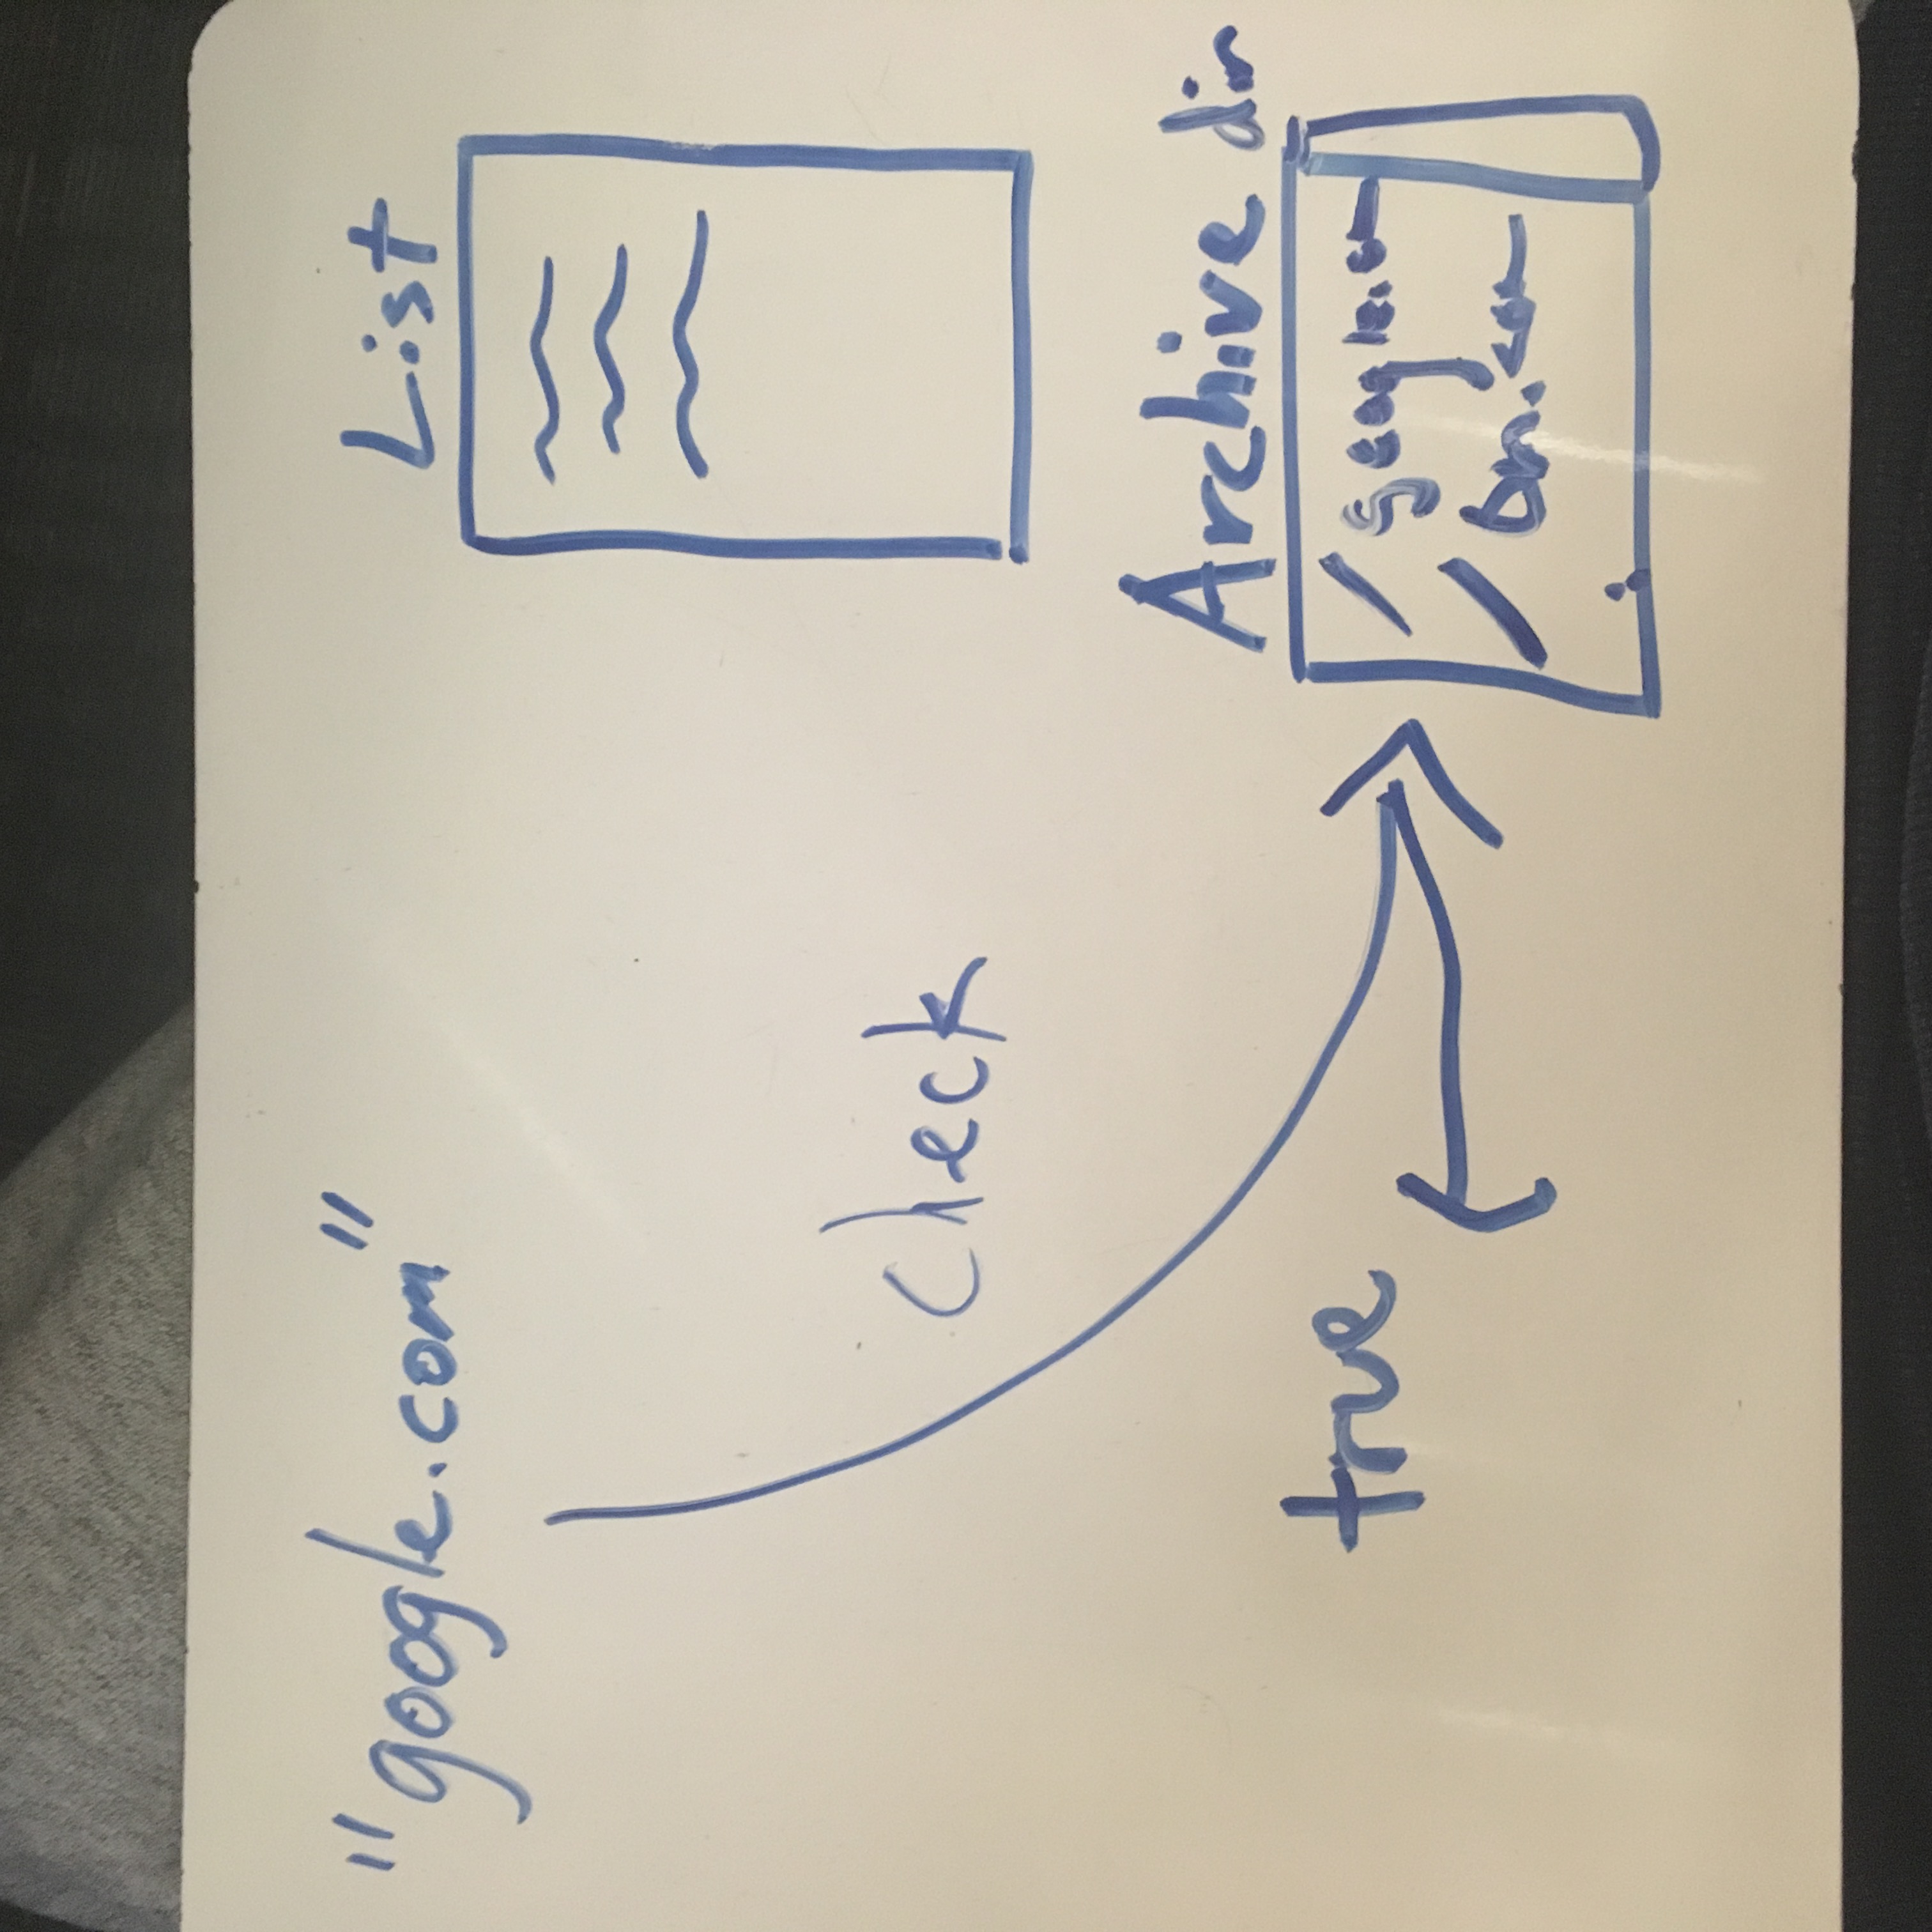 "google.com"
List
check
Archive dir
true
/ google.com
/ bn.com